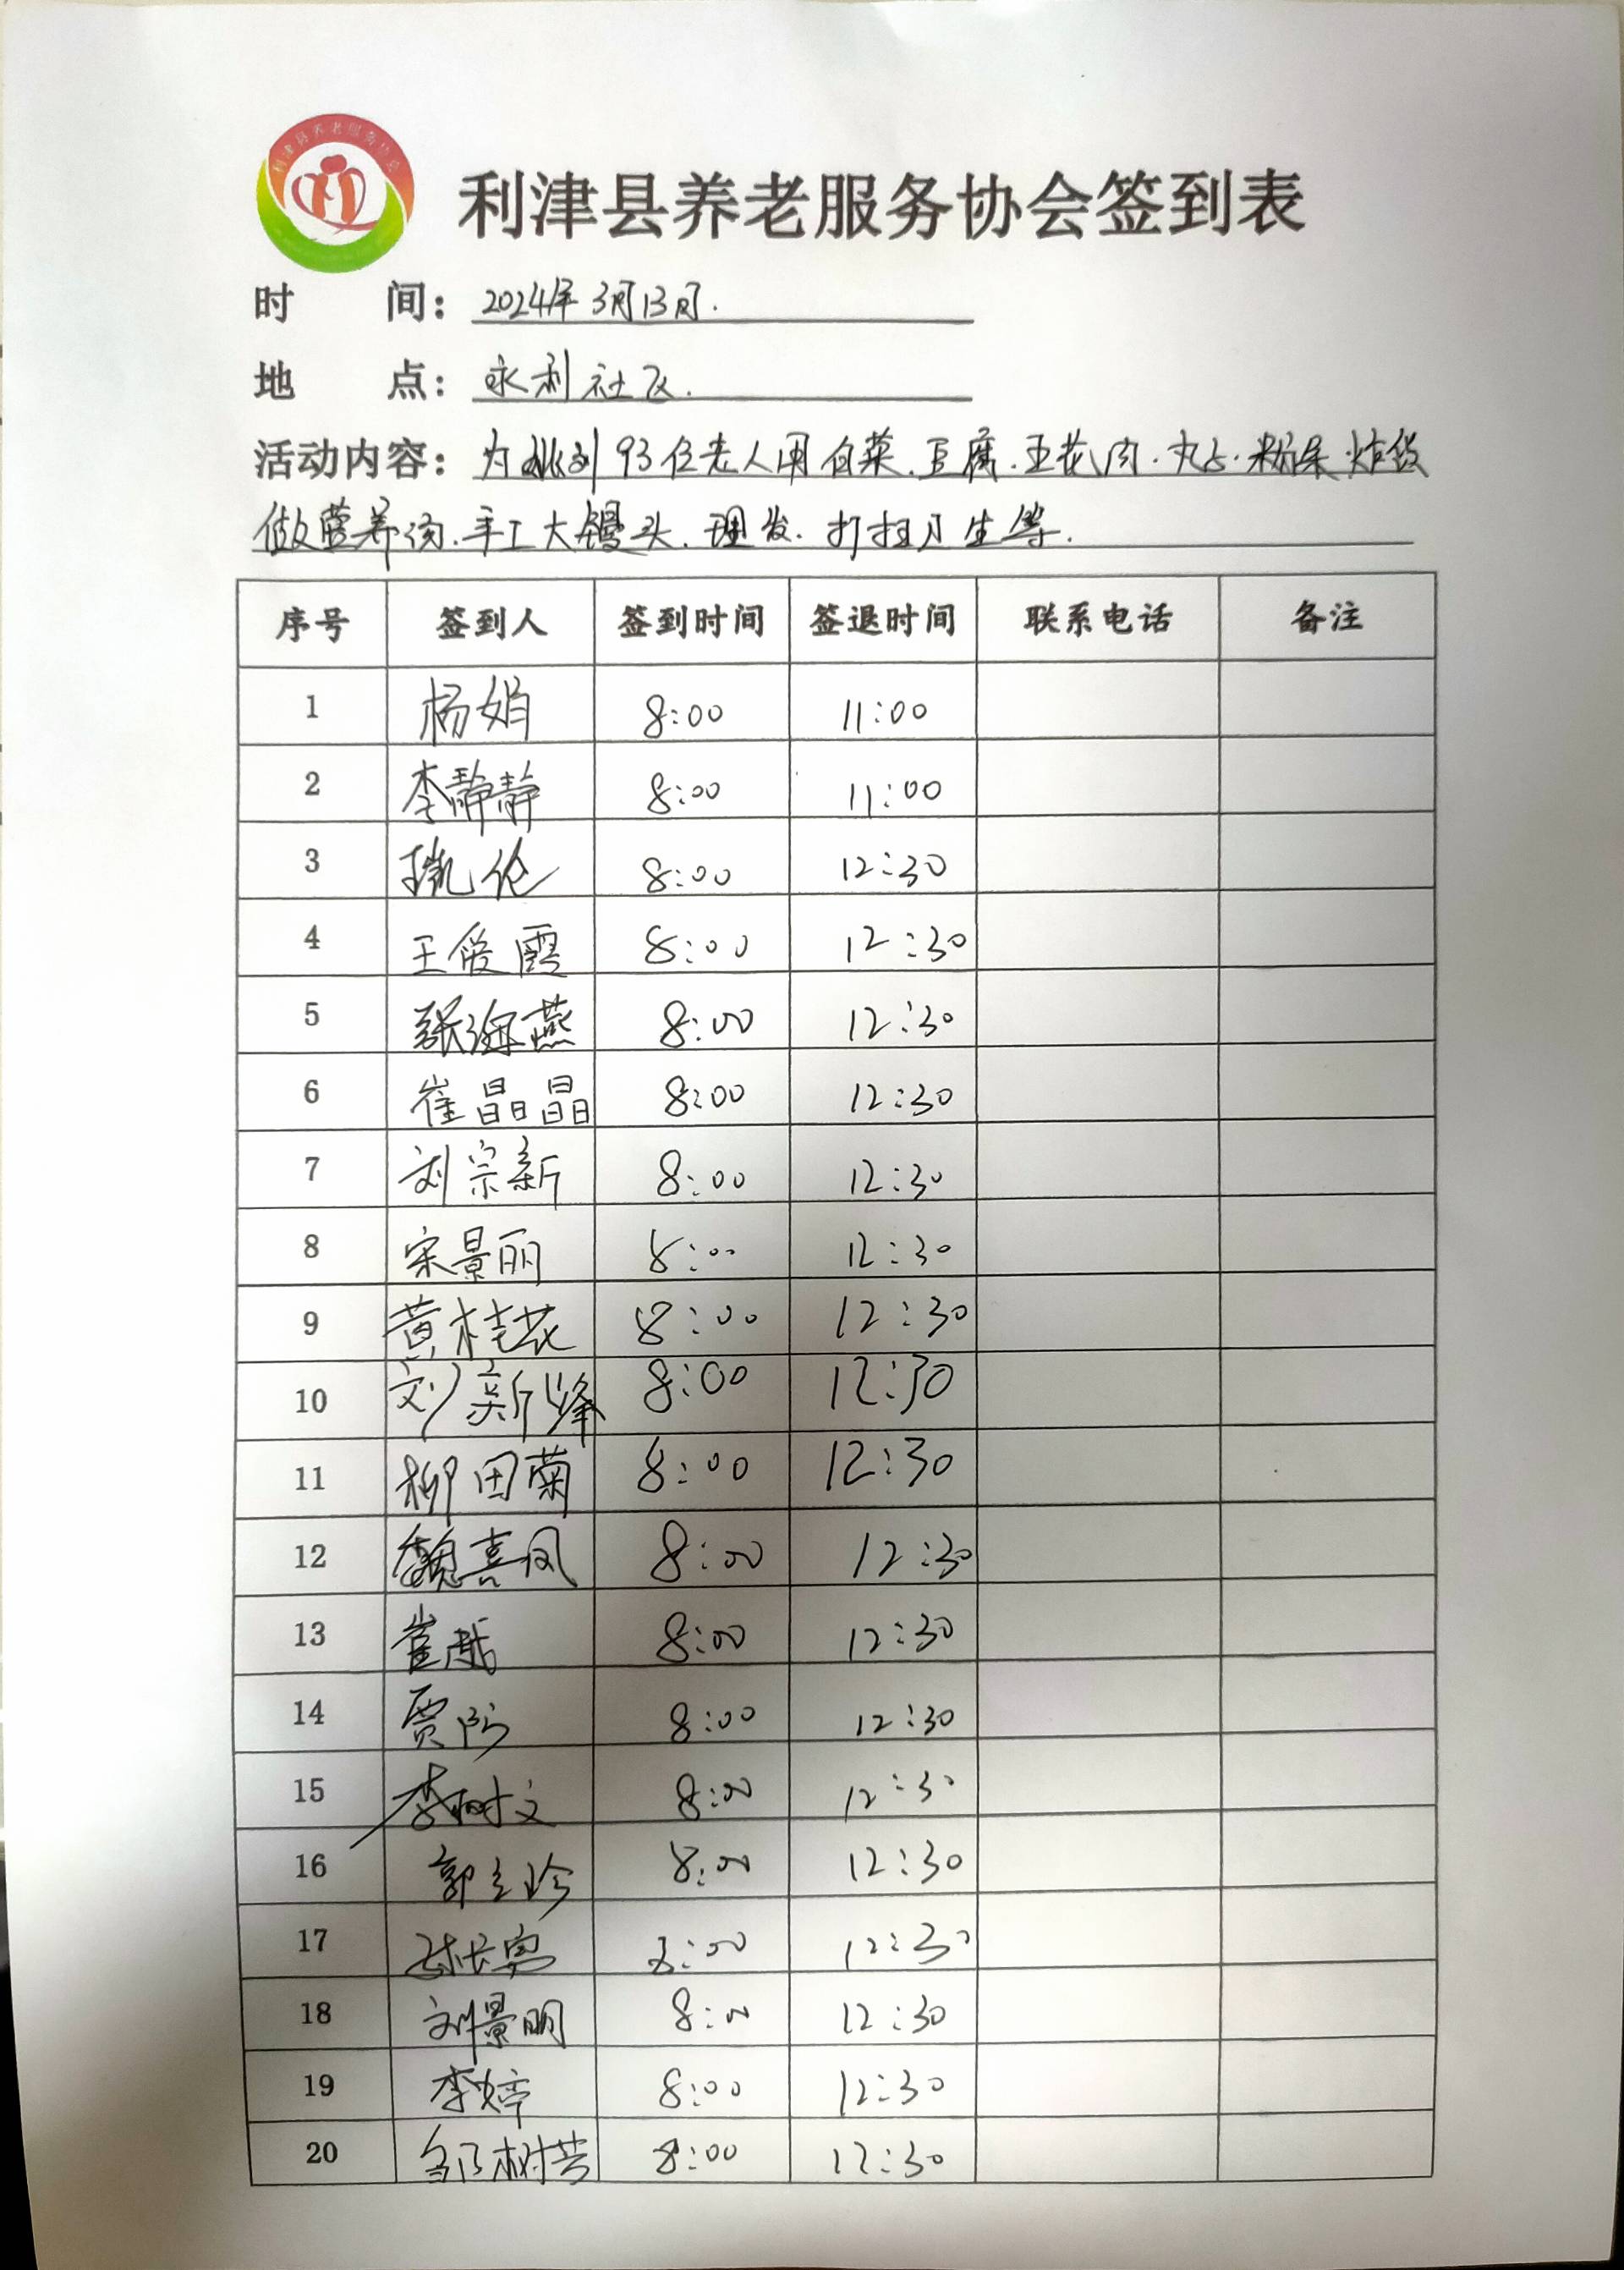 利津县养老服务协会
利津县养老服务协会签到表
时 间: 2024年3月13日.
地 点: 永利社区.
活动内容: 为 93位老人用白菜.豆腐.五花肉.丸子.粉条.炸货
做营养汤.手工大馒头.理发.打扫卫生等.
序号 签到人 签到时间 签退时间 联系电话 备注
1 杨娟 8:00 11:00
2 李静静 8:00 11:00
3 伦 8:00 12:30
4 王俊霞 8:00 12:30
5 张海燕 8:00 12:30
6 崔晶晶 8:00 12:30
7 刘宗新 8:00 12:30
8 宋景丽 8:00 12:30
9 黄桂花 8:00 12:30
10 刘新峰 8:00 12:30
11 柳田菊 8:00 12:30
12 魏喜凤 8:00 12:30
13 崔 8:00 12:30
14 贾 8:00 12:30
15 李树文 8:00 12:30
16 郭立珍 8:00 12:30
17 8:00 12:30
18 刘景明 8:00 12:30
19 李婷 8:00 12:30
20 邹树芸 8:00 12:30